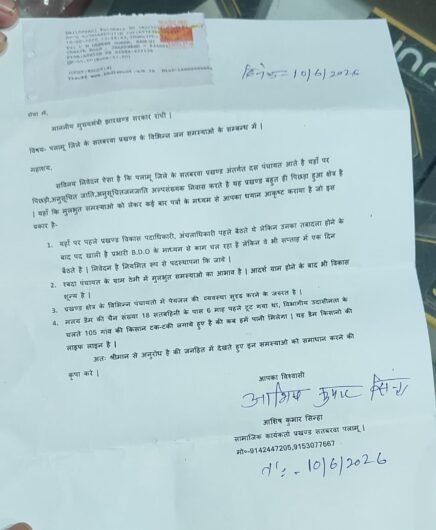 दिनांक = 10/6/2026
सेवा में,
माननीय मुख्यमंत्री झारखण्ड सरकार रांची |
विषय- पलामू जिले के सतबरवा प्रखण्ड के विभिन्न जन समस्याओं के सम्बन्ध में |
महाशय,
सविनय निवेदन ऐसा है कि पलामू जिले के सतबरवा प्रखण्ड अंतर्गत दस पंचायत आते है यहाँ पर
पिछड़ी,अनुसूचित जाति,अनुसूचितजनजाति अल्पसंख्यक निवास करते है यह प्रखण्ड बहुत ही पिछड़ा हुआ क्षेत्र है
| यहाँ कि मुलभुत समस्याओं को लेकर कई बार पत्रों के मध्यम से आपका धयान आकृष्ट कराया है जो इस
प्रकार है-
1. यहाँ पर पहले प्रखण्ड विकास पदाधिकारी, अंचलाधिकारी पहले बैठते थे लेकिन उनका तबादला होने के
बाद पद खाली है प्रभारी B.D.O के मध्यम से काम चल रहा है लेकिन वे भी सप्ताह में एक दिन
बैठते है | निवेदन है नियमित रूप से पदस्थापना कि जाये |
2. रबदा पंचायत के ग्राम ठेमी में मुलभुत समस्याओं का आभाव है | आदर्श ग्राम होने के बाद भी विकास
शून्य है |
3. प्रखण्ड क्षेत्र के विभिन्न पंचायतो में पेयजल की व्यवस्था सुदृढ करने के जरूरत है |
4. मलय डैम की चैन संख्या 18 सतबहिनी के पास 6 माह पहले टूट गया था, विभागीय उदासीनता के
चलते 105 गांव की किसान टक-टकी लगाये हुए है की कब हमें पानी मिलेगा | यह डैम किसानो की
लाइफ लाइन है |
अतः श्रीमान से अनुरोध है की जनहित में देखते हुए इन समस्याओं को समाधान करने की
कृपा करे |
आपका विश्वासी
आशिष कुमार सिन्हा
आशिष कुमार सिन्हा
सामाजिक कार्यकर्ता प्रखण्ड सतबरवा पलामू |
मो०-9142447205,9153077667
ता: - 10/6/2026